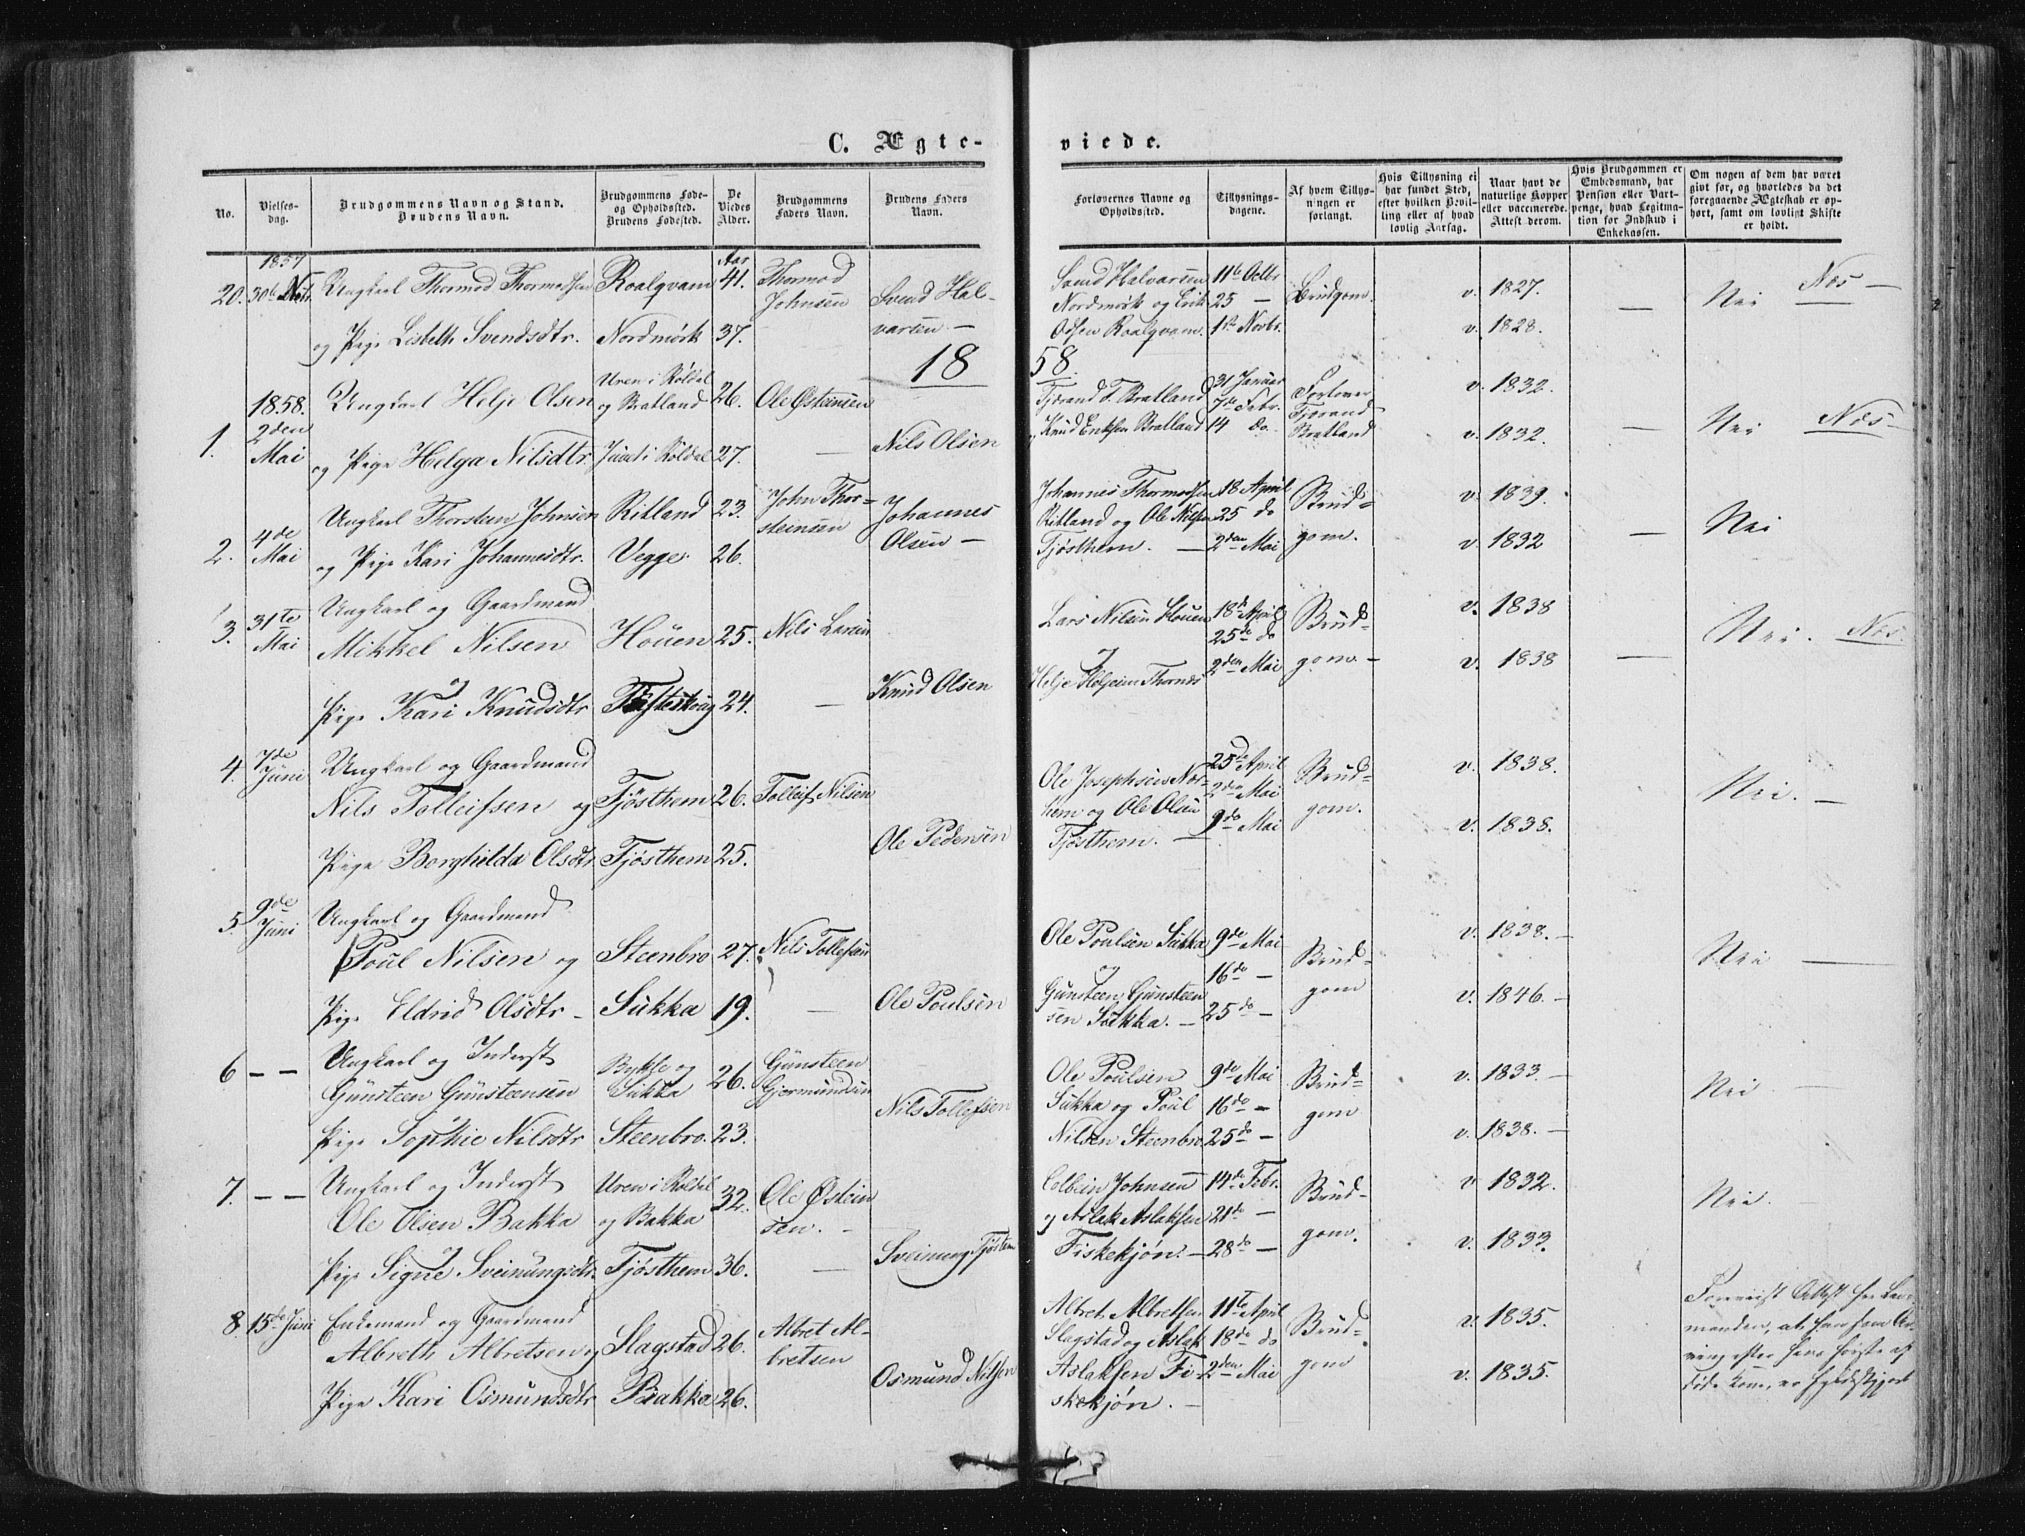 C. Ægte-
viede.
No.
Vielses-
dag.
Brudgommens Navn og Stand.
Brudens Navn.
Brudgommens Føde-
og Opholdssted.
Brudens Fødested.
De
Viedes
Alder.
Brudgommens
Faders Navn.
Brudens Faders
Navn.
Forlovernes Navne og
Opholdssted.
Tillysnings-
dagene.
Af hvem Tillys-
ningen er
forlangt.
Hvis Tillysning ei
har fundet Sted,
efter hvilken Bevil-
ling eller af hvad
lovlig Aarsag.
Naar havt de
naturlige Kopper
eller vaccinerede.
Attest derom.
Hvis Brudgommen er
Embedsmand, har
Pension eller Vart-
penge, hvad Legitima-
tion for Indskud i
Enkekassen.
Om nogen af dem har været
givt før, og hvorledes da det
foregaaende Ægteskab er op-
hørt, samt om lovligt Skifte
er holdt.
1857
20. 30te Novbr.
Ungkarl Thormod Thormodsen
og Pige Lisbeth Svendsdtr.
Roalqvam
Nordmørk
Aar
41.
37.
Thormod
Johnsen
Svend Hal-
varsen —
Svend Halvarsen
Nordmørk og Erik
Olsen Roalqvam.
11te Octbr
25 —
1ste Novbr.
Brudgom.
v. 1827.
v. 1828.
—
Nei
Næs —
1858.
1858.
1. 2den
Mai
Ungkarl Helje Olsen
og Pige Helga Nilsdtr
Uren i Røldal
og Bratland
Juvet i Røldal
26.
27.
Ole Østeinsen
—
Nils Olsen
Tjerand T. Bratland
Knud Eriksen Bratland
31 Januar
7de Febr.
14 do.
Forlover
Tjerand
Bratland
v. 1832.
v. 1832.
—
Nei
Næs-
2. 4de
Mai
Ungkarl Thorsten Johnsen
og Pige Kari Johannesdtr.
Ritland
Vegge
23.
26.
John Thor-
steinsen
Johannes
Olsen —
Johannes Thormodsen
Ritland og Ole Nilsen
Tjøsthem. —
18 April
25 do
2den Mai
Brud-
gom.
v. 1839.
v. 1832
—
Nei
3. 31te
Mai
Ungkarl og Gaardmand
Mikkel Nilsen
og
Pige Kari Knudsdtr
Houen
25.
24.
Nils Larsen
—
Knud Olsen
Lars Nilsen Houen
18de April
25de do
2den Mai
Brud-
gom. -
v. 1838
v. 1838
—
Nei. Næs
4. 7de
Juni
Ungkarl og Gaardmand
Nils Tolleifsen og
Pige Borghilda Olsdtr
Tjøsthem
Tjøsthem
26.
25.
Tolleif Nilsen
Ole Pedersen
Ole Josephsen Nær-
hem og Ole Olsen
Tjøsthem. —
25de April
2den Mai
9de Mai
Brud-
gom.
v. 1838.
v. 1838.
Nei. —
5. 9de
Juni
Ungkarl og Gaardmand
Poul Nilsen og
Pige Eldrid Olsdtr -
Steenbro
Sukka
27.
19.
Nils Tollefsen
—
Ole Poulsen
Ole Poulsen Sukka
og
Gunsteen Gunsteen
sen Sukka. —
9de Mai
16de —
25de —
Brud-
gom
v. 1838. —
v. 1846. —
Nei —
6 — —
Ungkarl og Inderst
Gunsteen Gunsteensen
og
Pige Sophie Nilsdtr
Bykle og
Sukka
Steenbro.
26.
23.
Gunsteen
Gjermundsen
Nils Tollefsen
Ole Poulsen
Sukka og Poul
Nilsen Steenbro
9de Mai
16de —
25de —
Brud-
gom
v. 1833. —
v. 1838. —
Nei —
7. — —
Ungkarl og Inderst
Ole Olsen Bakka
og
Pige Signe Sveinungsdtr.
Uren i Røldal
og Bakka
Tjøsthem
32.
36.
Ole Østein
sen. -
—
Sveinung Tjøstem
Colbein Johnsen
og Aslak Aslaksen
Fiskekjøn. —
14de Febr.
21de —
28de —
Brud-
gom.
v 1832.
v. 1833.
Nei. —
8 15de Juni
Enkemand og Gaardmand
Albreth Albretsen og
Pige Kari Osmundsdtr
Slagstad
Bakka
26.
26.
Albret Al-
bretsen
Osmund Nilsen
Albret Albretsen
Slagstad og Aslak
Aslaksen Fi-
skekjøn. —
11te April
18de do
2den Mai
Brud-
gom
v. 1835.
v. 1835.
Foreviist Attest fra Len-
manden, at
efter hans første af
døde Kone, er